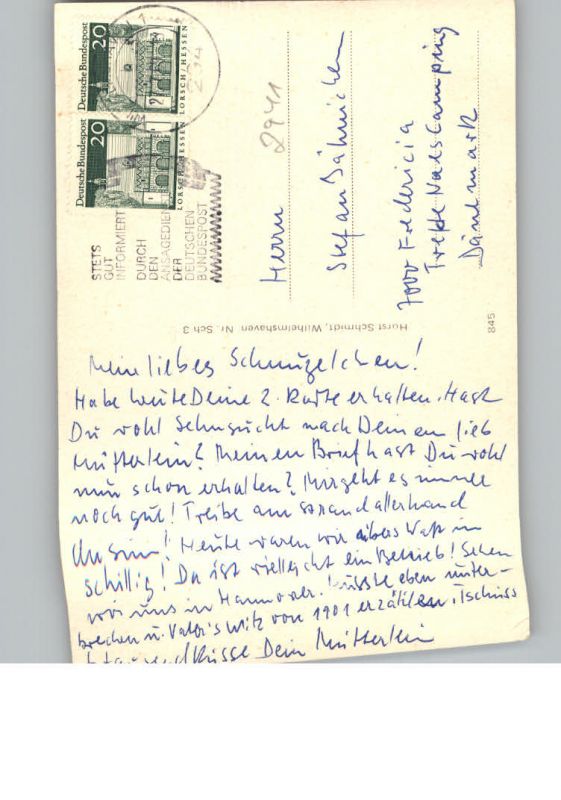 Deutsche Bundespost
20
LORSCH/HESSEN
Deutsche Bundespost
20
LORSCH/HESSEN
STETS
GUT
INFORMIERT
DURCH
DEN
ANSAGEDIENST
DER
DEUTSCHEN
BUNDESPOST
2941
Herrn
Stefan Jähnichen
7000 Fredericia
Trelde Næs Camping
Dänemark
Horst Schmidt, Wilhelmshaven Nr. Sch 3
845
Mein liebes Schnuzelchen!
Habe heute Deine 2. Karte erhalten. Hast
Du wohl Sehnsucht nach Deinem lieb
Mütterlein? Meinen Brief hast Du wohl
nun schon erhalten? Mir geht es immer
noch gut! Treibe am Strand allerhand
Unsinn! Heute waren wir übers Watt in
Schillig! Da ist vielleicht ein Betrieb! Sehen
wir uns in Hannover. Musste eben unter-
brechen u. Vater's Witz von 1901 erzählen. Tschüss
tausend Küsse Dein Mütterlein